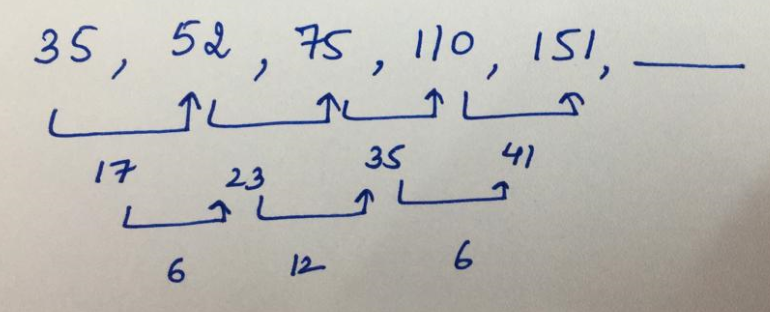 35, 52, 75, 110, 151, ____
17 23 35 41
6 12 6